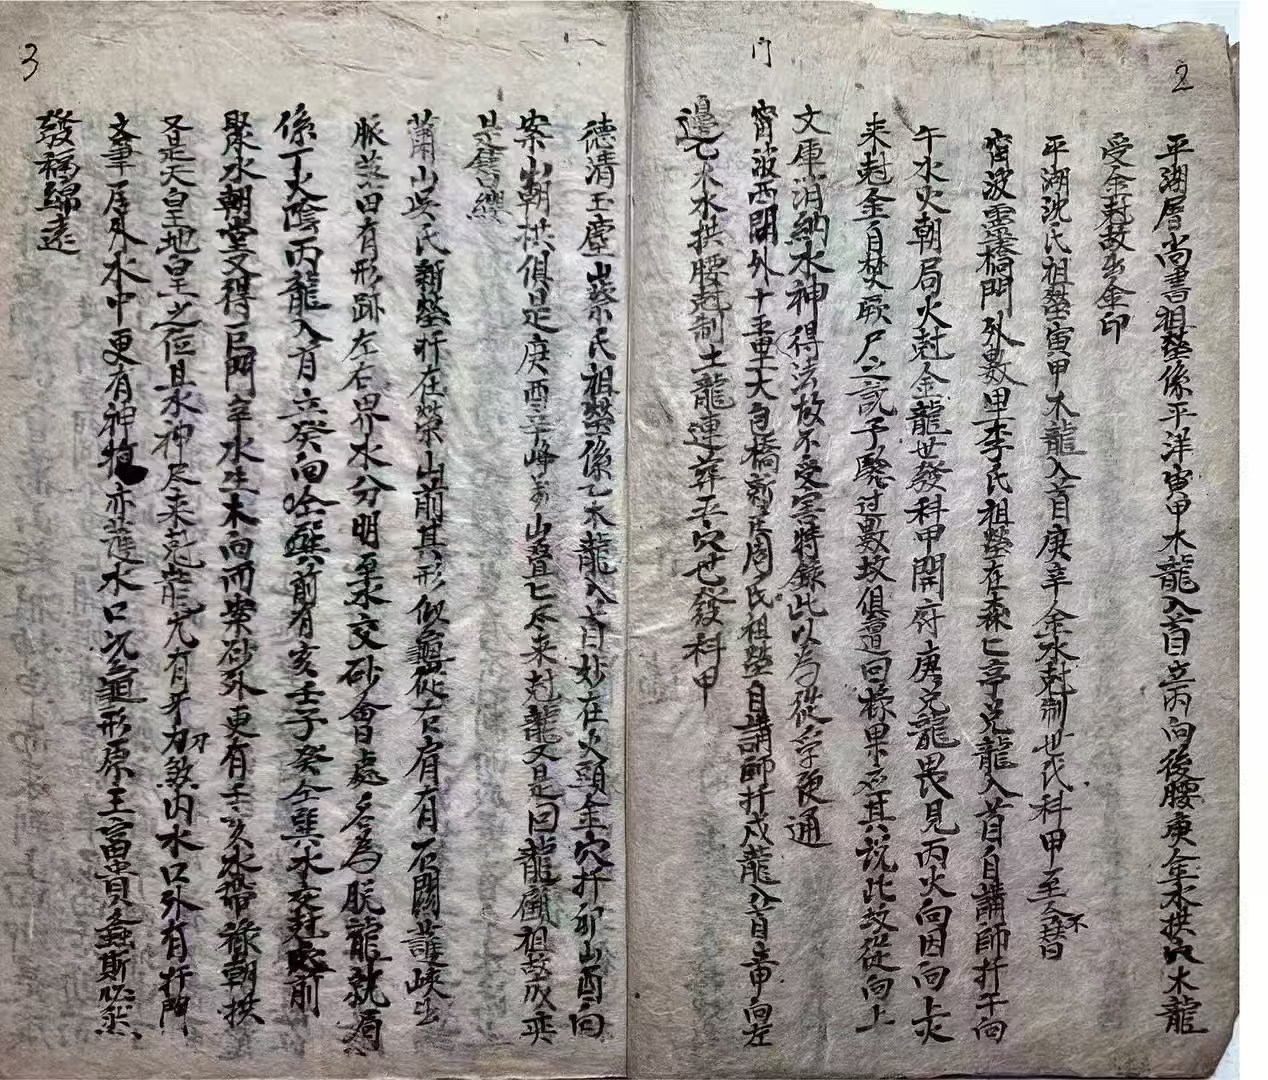 2
平湖屠尚書祖塋係平洋寅甲木龍入首立丙向後腰庚金水拱穴木龍
受金尅故出金印
平湖沈氏祖塋寅甲木龍入首庚辛金水尅制世代科甲至今不替
甯波靈橋門外數里李氏祖塋在森七亭兌龍入首目講師扦午向
午水火朝局火尅金龍世發科甲開府庚兌龍畏見丙火向因向上火
来尅金自焚厥尸之説予騐过數坟俱遭回祿果应其説此坟從向上
文庫消納水神得法故不受害特錄此以為從学変通
甯波西關外十五里大包橋新庄周氏祖塋目講師扦戌龍入首章甲向左
邊乙木水拱腰尅制土龍連葬五穴世發科甲
3
德清玉塵山蔡氏祖塋係乙木龍入首妙在火頭金穴扦卯山酉向
案山朝拱俱是庚酉辛峰前山砂尽来尅龍又是回龍顧祖故成奕
世簪纓
蕭山吳氏新塋扦在榮山前其形似龜從右肩有石關護峽出
脈落田有形跡左右界水分明至水交砂會處名為脫龍就局
係丁火陰丙龍入首立癸向明堂前有亥壬子癸合巽水交尅處前
聚水朝堂又得巨門辛水生木向而案砂外更有壬亥水帶祿朝拱
又是天皇地皇之位且水神尽来尅龍尤有牙刀煞内水口外有扦門
文筆居外水中更有神物亦護水口况龜形原主富貴螽斯必然
發福綿遠